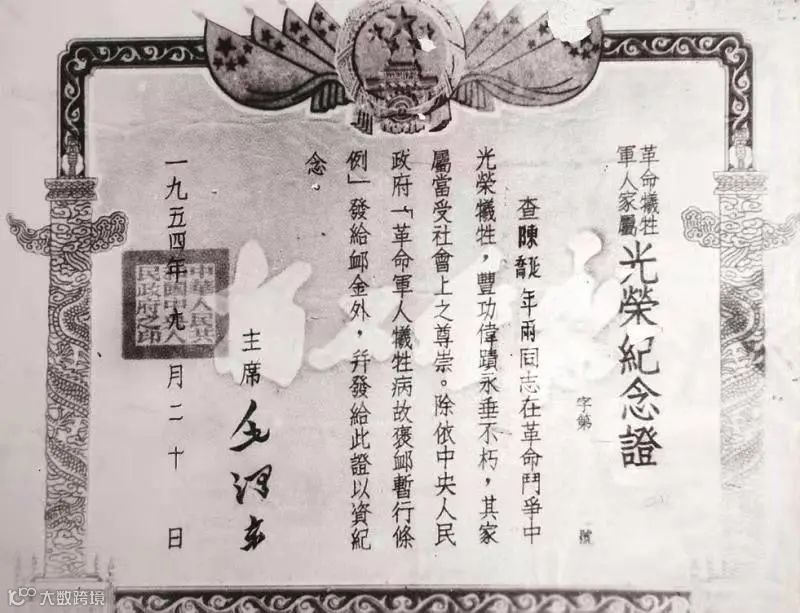 革命犧牲
軍人家屬
光榮紀念證
字第 號
查陳喬延年兩同志在革命鬥爭中
光榮犧牲，豐功偉蹟永垂不朽，其家
屬當受社會上之尊崇。除依中央人民
政府「革命軍人犧牲病故褒卹暫行條
例」發給卹金外，幷發給此證以資紀
念
主席 毛澤東
一九五四年九月二十日
中華人民共
和國中央人
民政府之印
大数跨境